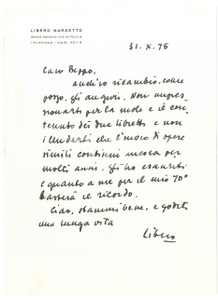 LIBERO MARZETTO
31. X. 75
Caro Beppo,
anch'io ricambio, come
posso, gli auguri. Non impres-
sionarti per la mole e il con-
tenuto dei due libretti e non
illuderti che l'invio di opere
simili continui ancora per
molti anni. Gli ho esauriti
e quanto a me per il mio 70°
basterà il ricordo.
Ciao, stammi bene, e goditi
una lunga vita
Libero